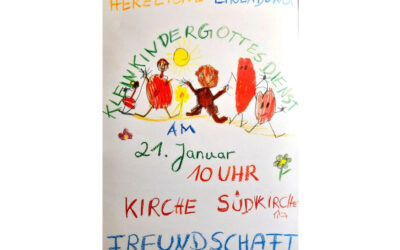 HERZLICHE EINLADUNG
KLEINKINDERGOTTESDIENST
AM
21. Januar
10 UHR
KIRCHE SÜDKIRCHE
FREUNDSCHAFT